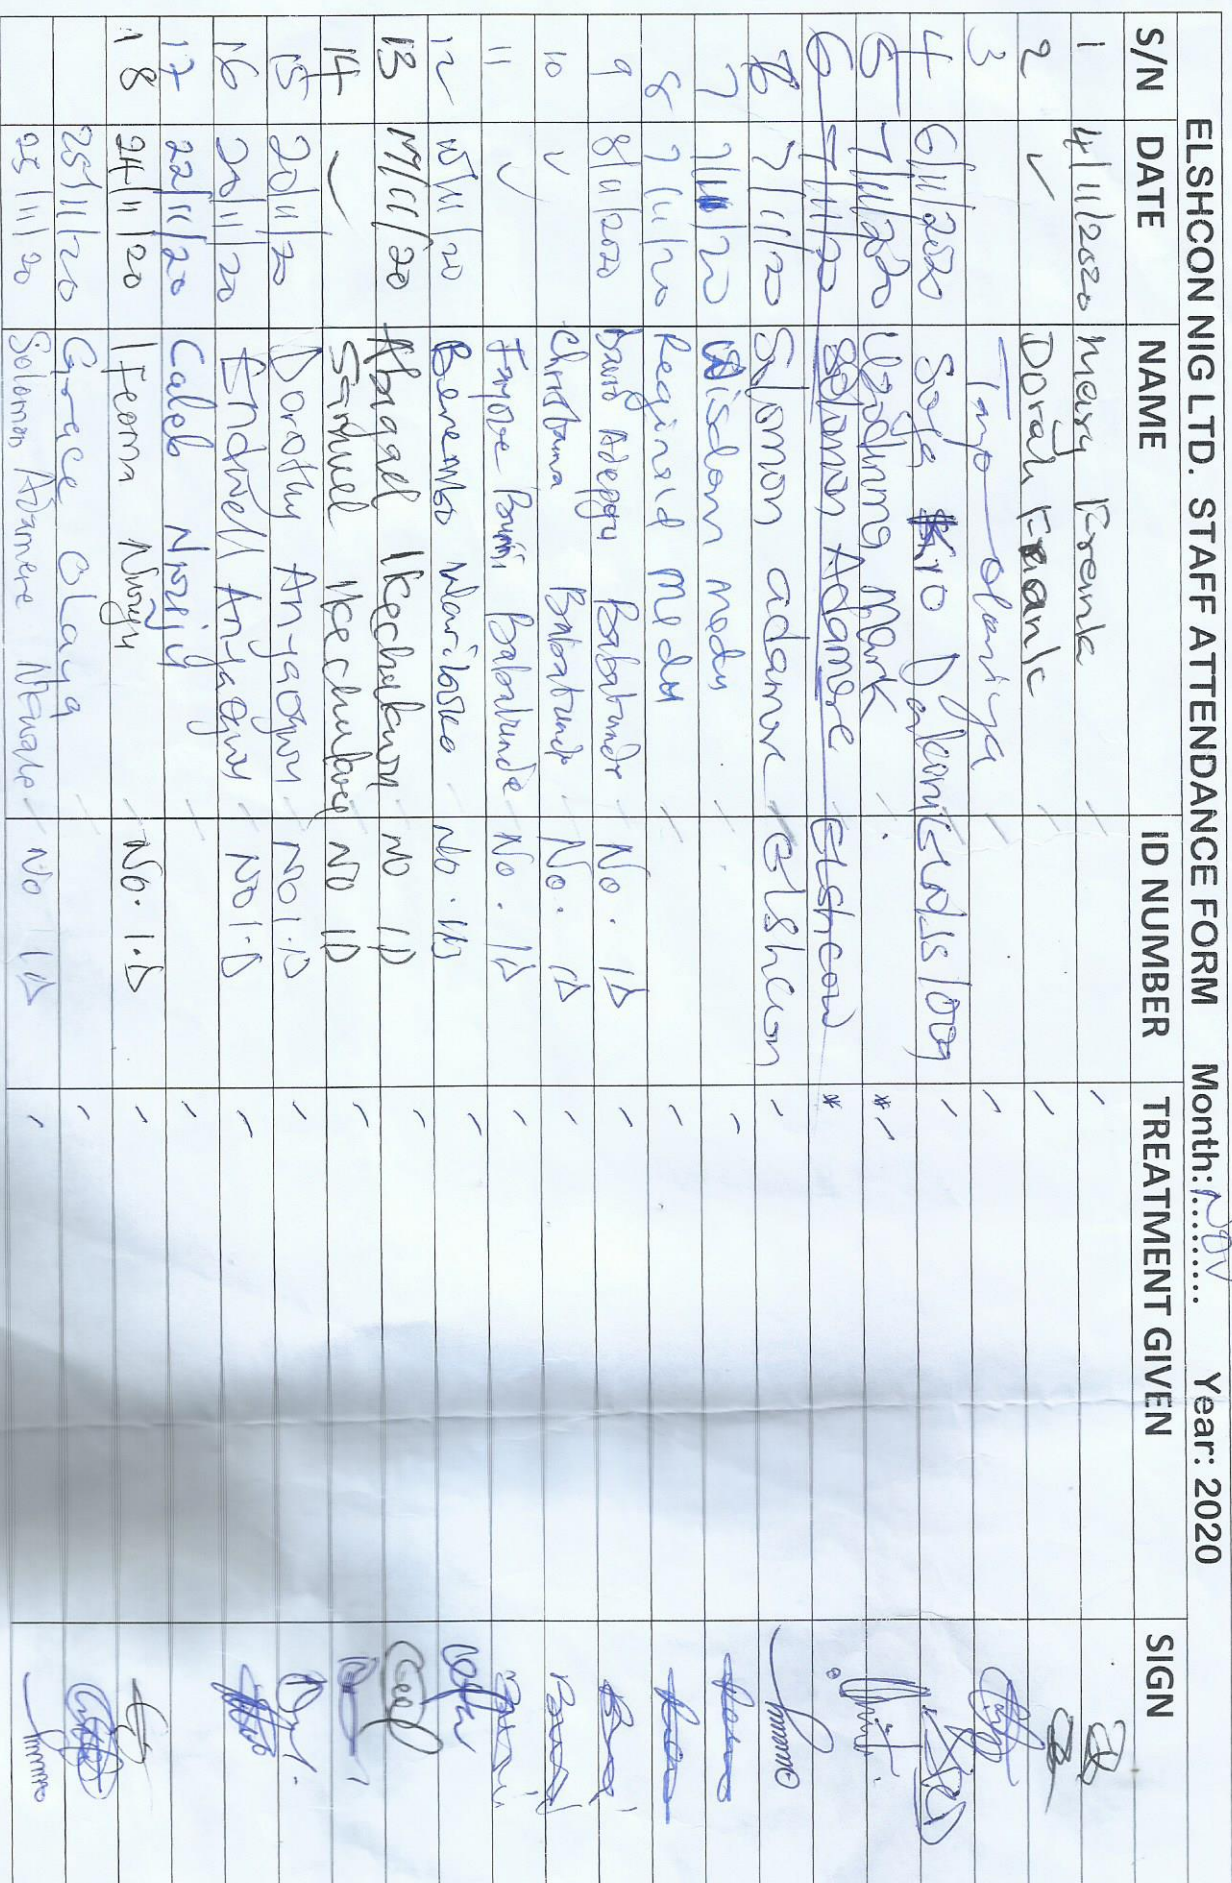 ELSHCON NIG LTD. STAFF ATTENDANCE FORM Month: NOV Year: 2020
S/N DATE NAME ID NUMBER TREATMENT GIVEN SIGN
1 4/11/2020 Mary Frank
2 ✓ Dorah Frank
3 Tayo Olaniya
4 6/11/2020 Soga
5 7/11/2020 Ugodinma Mark
6 7/11/20 Solomon Adamere Elshcon
6 7/11/20 Solomon adamere Elshcon
7 7/11/20 Wisdom Medu
8 7/11/20 Reginald Medu
9 8/11/2020 David Babatunde No. ID
10 ✓ Christiana Babatunde No. ID
11 ✓ Babatunde No. ID
12 15/11/20 No. ID
13 17/11/20 Abigael Ikechukwu NO ID
14 ✓ Samuel Ikechukwu NO ID
15 20/11/20 Dorothy Anyaogwu NO I.D
16 20/11/20 Endwell Anyaogwu NO I.D
17 22/11/20 Caleb
18 24/11/20 Ifeoma No. I.D
25/11/20 Grace Olaya
25/11/20 Solomon Adamere No ID